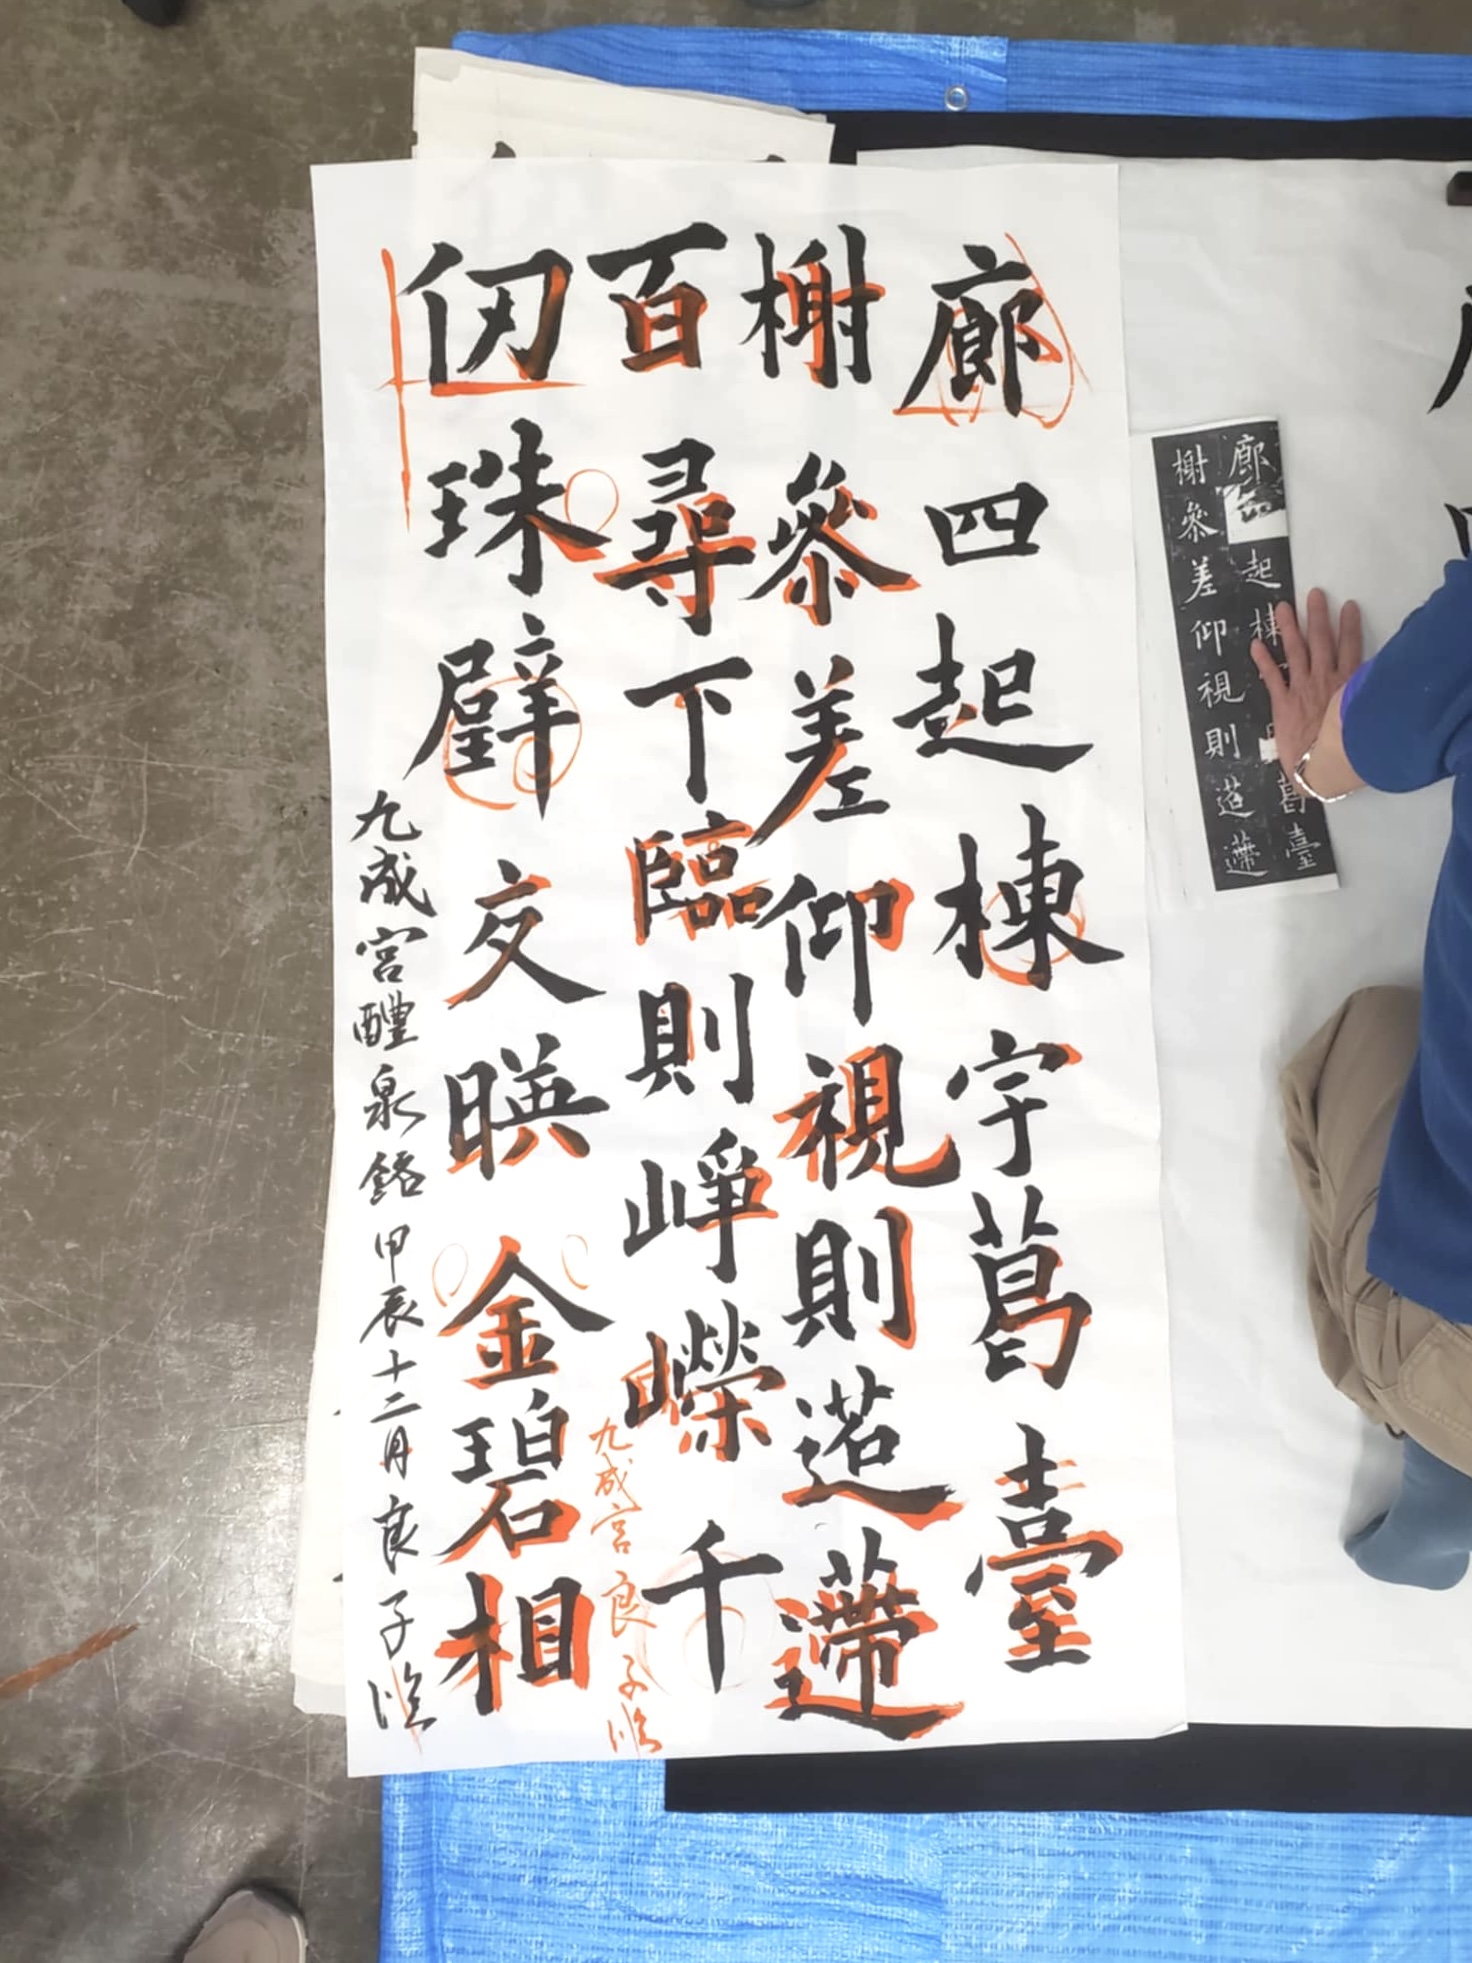 廊四起棟宇葛臺
榭參差仰視則迢遰
百尋下臨則崢嶸千
仞珠璧交暎金碧相
九成宮醴泉銘 甲辰十二月 良子臨
九成宮 良子臨
廊 起棟 葛臺
榭參差仰視則迢遰